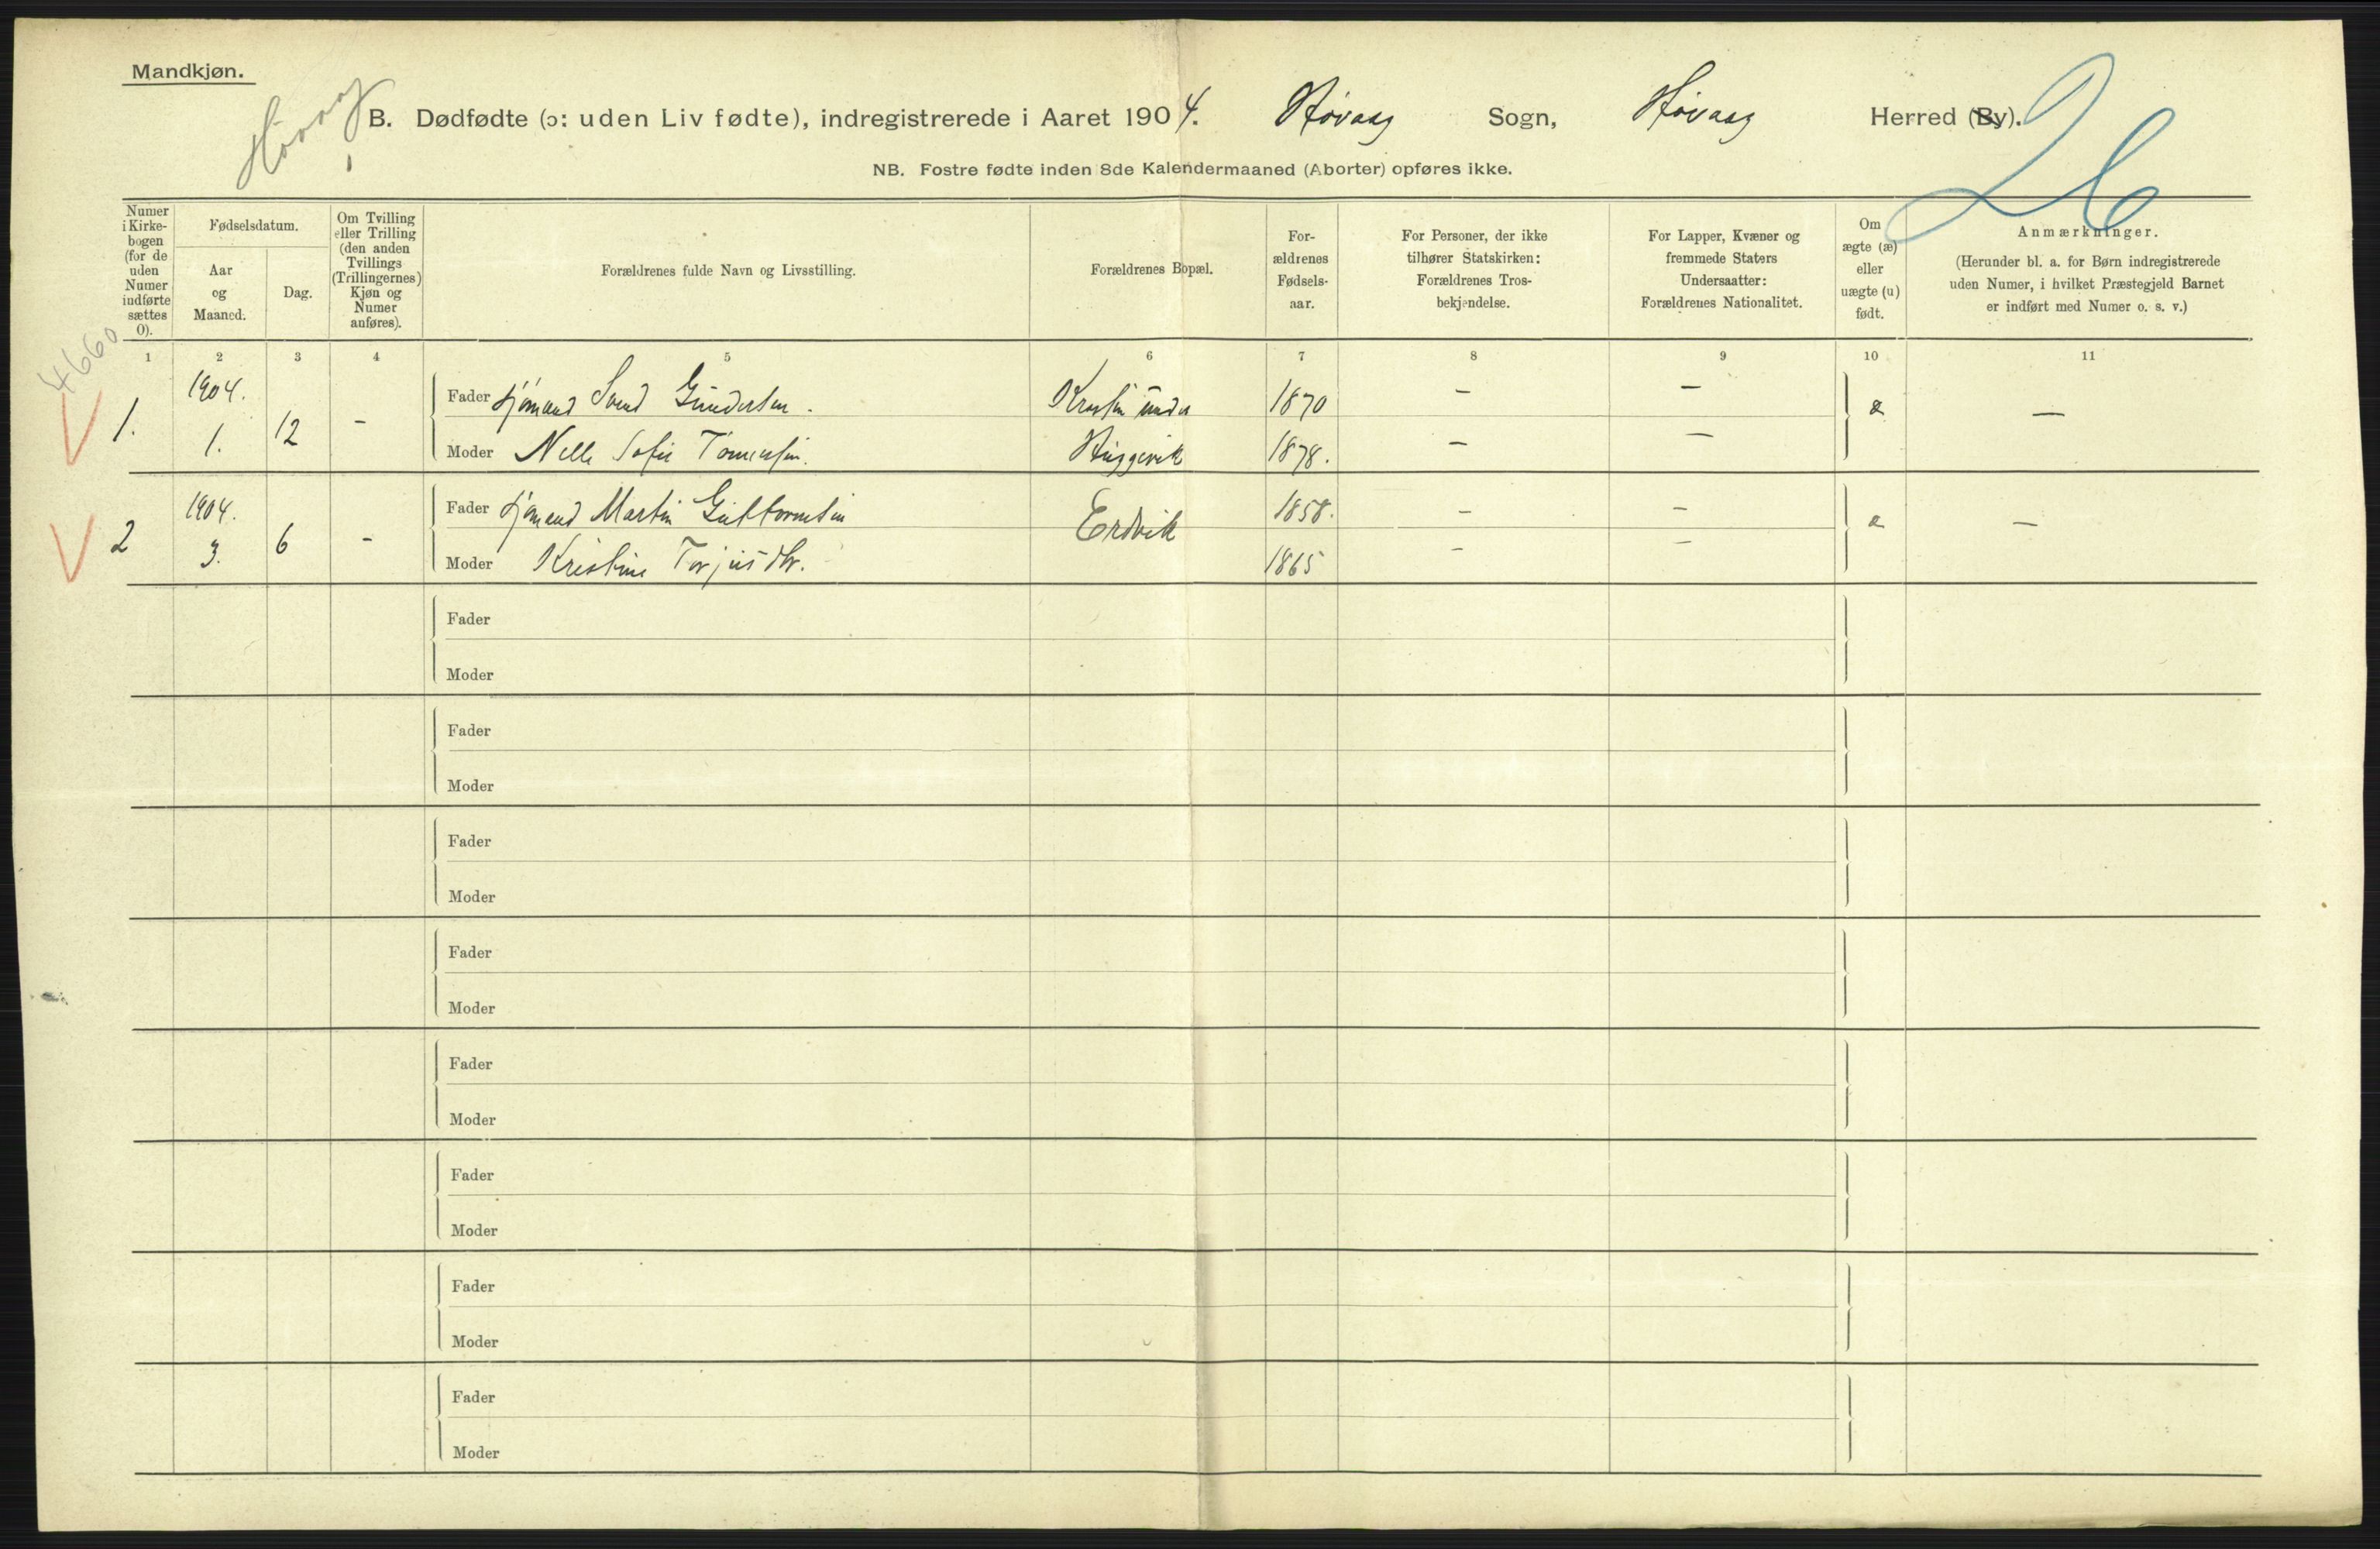 Mandkjøn.
Høvaag
B. Dødfødte (ɔ: uden Liv fødte), indregistrerede i Aaret 1904. Høvaag Sogn, Høivaag Herred (By).
26
NB. Fostre fødte inden 8de Kalendermaaned (Aborter) opføres ikke.
Numer
i Kirke-
bogen
(for de
uden
Numer
indførte
sættes
0).
Fødselsdatum.
Aar
og
Maaned.
Dag.
Om Tvilling
eller Trilling
(den anden
Tvillings
(Trillingernes)
Kjøn og
Numer
anføres).
Forældrenes fulde Navn og Livsstilling.
Forældrenes Bopæl.
For-
ældrenes
Fødsels-
aar.
For Personer, der ikke
tilhører Statskirken:
Forældrenes Tros-
bekjendelse.
For Lapper, Kvæner og
fremmede Staters
Undersaatter:
Forældrenes Nationalitet.
Om
ægte (æ)
eller
uægte (u)
født.
Anmærkninger.
(Herunder bl. a. for Børn indregistrerede
uden Numer, i hvilket Præstegjeld Barnet
er indført med Numer o. s. v.)
4660
1 2 3 4 5 6 7 8 9 10 11
1. 1904. 1. 12 -
Fader sjömand Svend Gundersen. under 1870 - - æ -
Moder Nelle Sofie Tomersen. 1878. - -
2 1904. 3. 6 -
Fader sjömand Martin Guttormsen Erdvik 1858. - - æ -
Moder Kristine Torjusdtr. 1865 - -
Fader
Moder
Fader
Moder
Fader
Moder
Fader
Moder
Fader
Moder
Fader
Moder
Fader
Moder
Fader
Moder